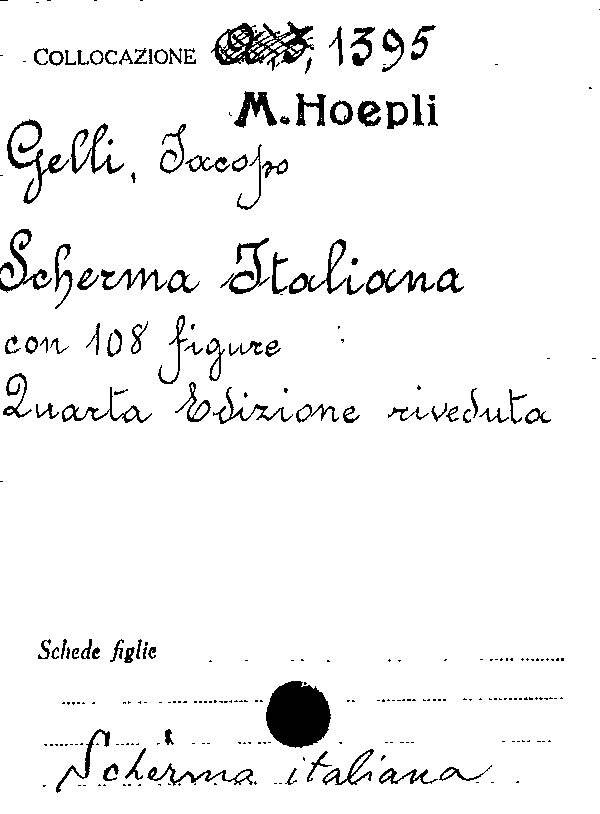 COLLOCAZIONE 1395
M. Hoepli
Gelli, Jacopo
Scherma Italiana
con 108 figure
Quarta Edizione riveduta
Schede figlie
Scherma italiana